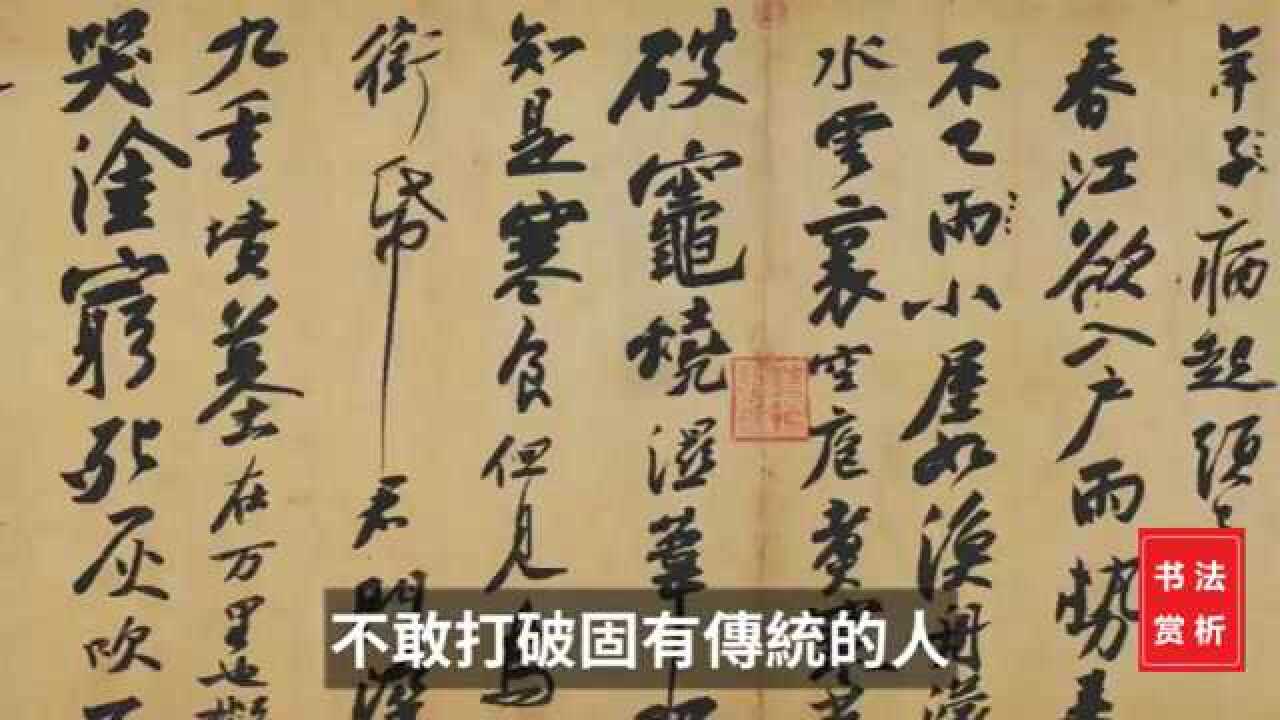 年子病起頭
春江欲入戶雨勢来
不已雨小屋如漁舟濛
水雲裏空庖煮寒
破竈燒濕葦
知是寒食但見烏
銜帋君門深
九重墳墓在万里也擬
哭塗窮死灰吹不
不敢打破固有傳統的人
书法
赏析